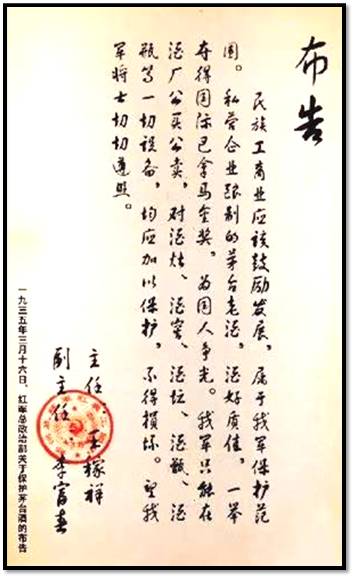 布告
民族工商业应该鼓励发展，属于我军保护范
围。私营企业酿制的茅台老酒，酒好质佳，一举
夺得国际巴拿马金奖，为国人争光。我军只能在
酒厂公买公卖，对酒灶、酒窖、酒坛、酒甑、酒
瓶等一切设备，均应加以保护，不得损坏。望我
军将士切切遵照。
主任：王稼祥
副主任：李富春
一九三五年三月十六日，红军总政治部关于保护茅台酒的布告